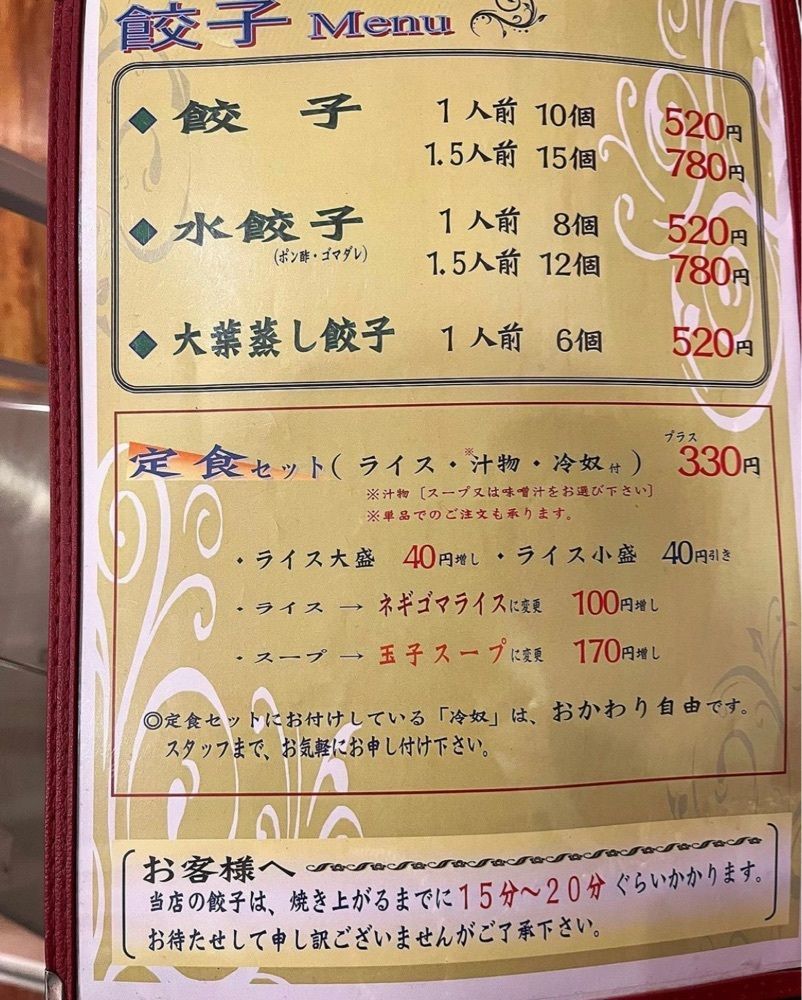 餃子 Menu
◆ 餃子 1人前 10個 520円
1.5人前 15個 780円
◆ 水餃子 1人前 8個 520円
(ポン酢・ゴマダレ) 1.5人前 12個 780円
◆ 大葉蒸し餃子 1人前 6個 520円
定食セット(ライス・※汁物・冷奴付) プラス 330円
※汁物〔スープ又は味噌汁をお選び下さい〕
※単品でのご注文も承ります。
・ライス大盛 40円増し ・ライス小盛 40円引き
・ライス → ネギゴマライスに変更 100円増し
・スープ → 玉子スープに変更 170円増し
◎定食セットにお付けしている「冷奴」は、おかわり自由です。
スタッフまで、お気軽にお申し付け下さい。
お客様へ
当店の餃子は、焼き上がるまでに15分〜20分ぐらいかかります。
お待たせして申し訳ございませんがご了承下さい。